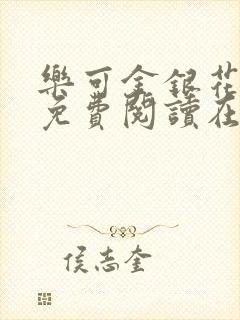 樂可金銀花
免費閱讀在
侯志奎